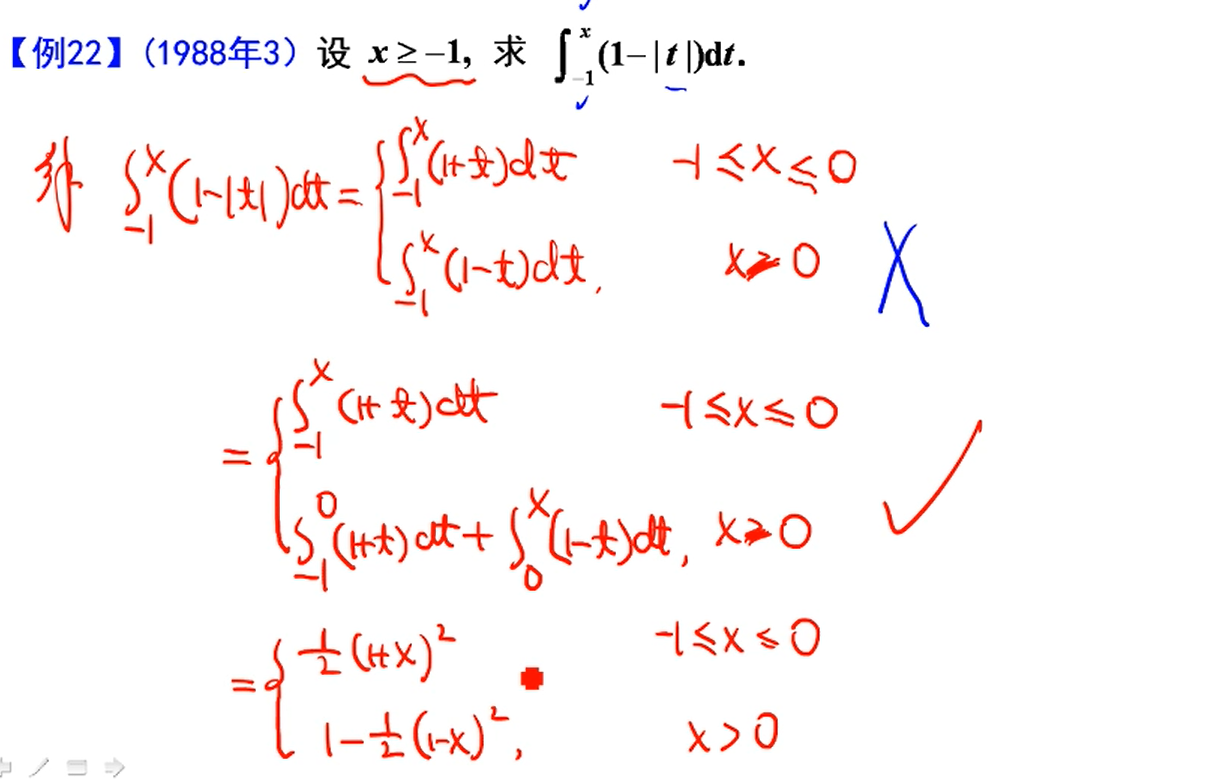 【例22】(1988年3) 设 x ≥ −1, 求 ∫_{−1}^{x} (1−|t|)dt.
解 ∫_{-1}^{x} (1-|t|)dt = { ∫_{-1}^{x} (1+t)dt -1 ≤ x ≤ 0
∫_{-1}^{x} (1-t)dt, x > 0 X
= { ∫_{-1}^{x} (1+t)dt -1 ≤ x ≤ 0
∫_{-1}^{0} (1+t)dt + ∫_{0}^{x} (1-t)dt, x > 0 ✓
= { 1/2 (1+x)² -1 ≤ x ≤ 0
1 - 1/2 (1-x)², x > 0